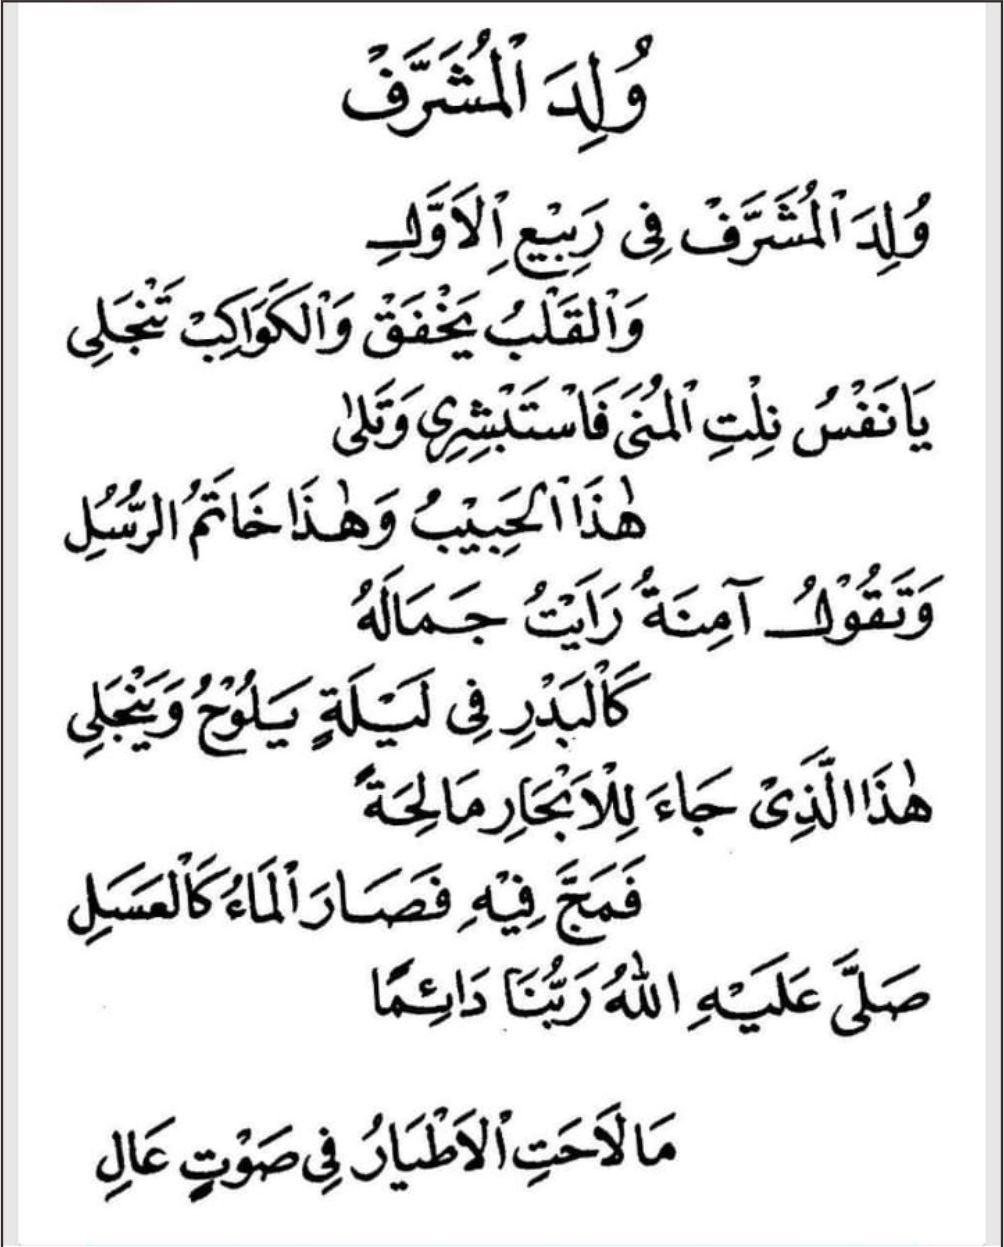 وُلِدَ الْمُشَرَّفْ
وُلِدَ الْمُشَرَّفْ فِى رَبِيْعِ اِلاَوَّلِ
وَالْقَلْبُ يَخْفَقْ وَالْكَوَاكِبْ تَنْجَلِى
يَا نَفْسُ نِلْتِ الْمُنَى فَاسْتَبْشِرِى وَتَلَى
هٰذَا الْحَبِيْبُ وَهٰذَا خَاتَمُ الرُّسُلِ
وَتَقُوْلُ آمِنَةُ رَاَيْتُ جَمَالَهُ
كَالْبَدْرِ فِى لَيْلَةٍ يَلُوْحُ وَيَنْجَلِى
هٰذَا الَّذِىْ جَاءَ لِلْاَبْحَارِ مَالِحَةً
فَمَجَّ فِيْهِ فَصَارَ الْمَاءُ كَالْعَسَلِ
صَلَّى عَلَيْهِ اللّٰهُ رَبُّنَا دَائِمًا
مَالاَحَتِ الْاَطْيَارُ فِى صَوْتٍ عَالِ